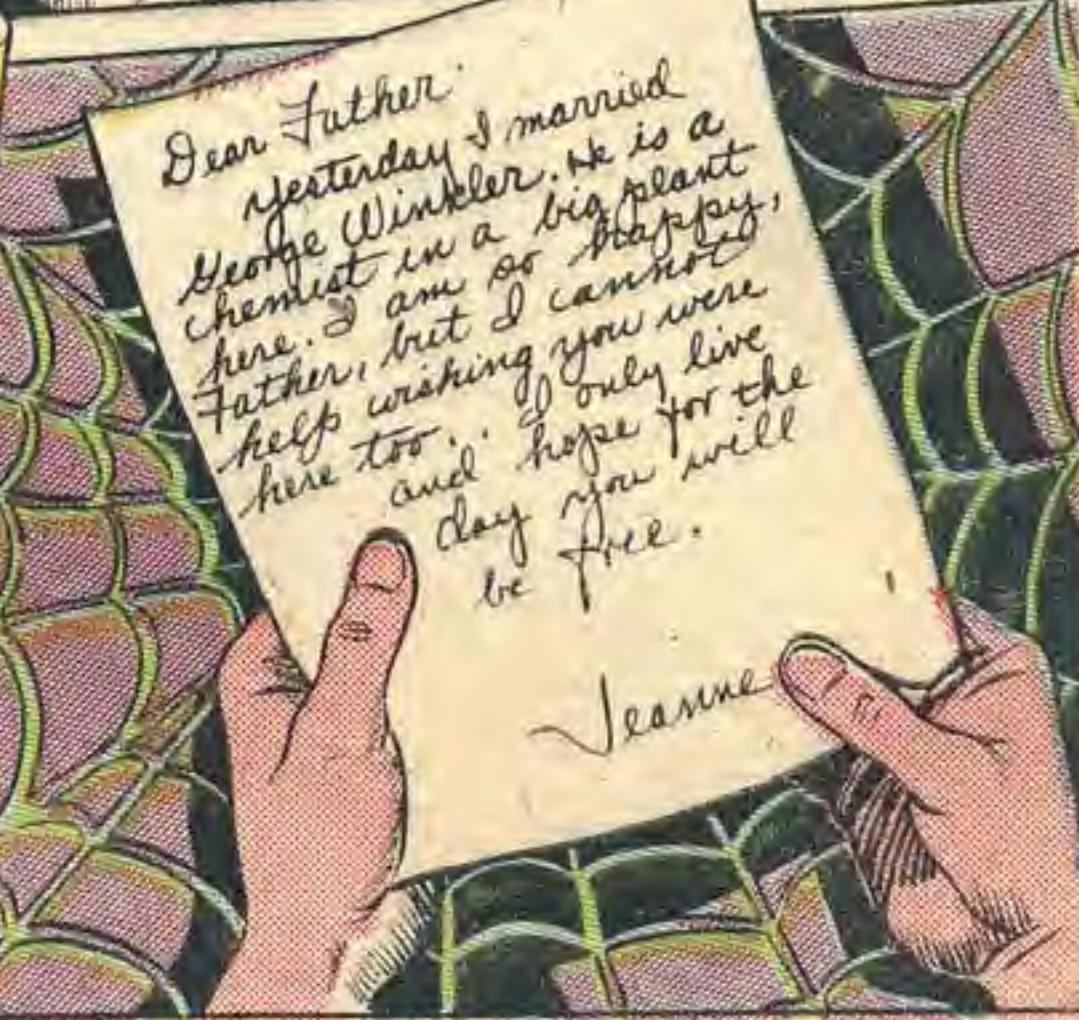 Dear Father
yesterday I married
George Winkler. He is a
chemist in a big plant
here. I am so happy,
Father, but I cannot
help wishing you were
here too.. I only live
and hope for the
day you will
be free.
Jeanne